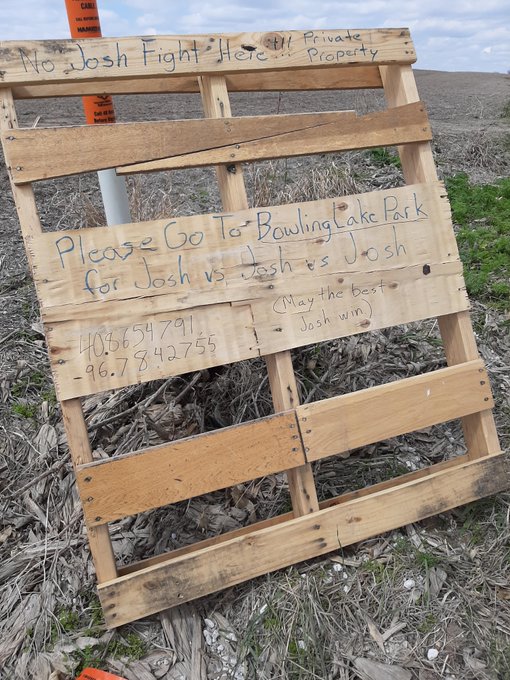 CABLE
No Josh Fight Here !!! Private
Property
Please Go To Bowling Lake Park
for Josh vs. Josh vs Josh
40.8654791,
96.7842755
(May the best
Josh win.)